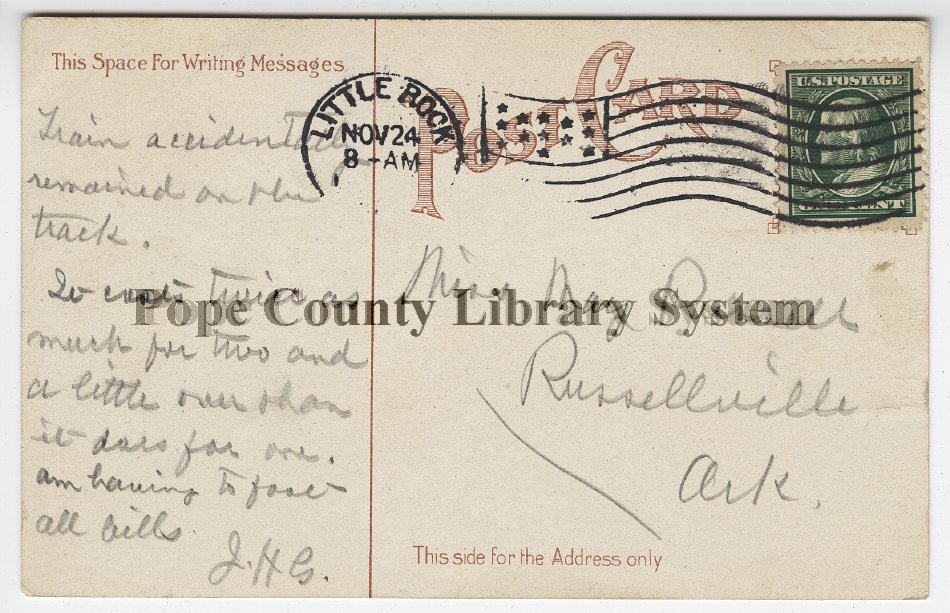 This Space For Writing Messages
POST CARD
LITTLE ROCK
NOV 24
8-AM
U.S. POSTAGE
ONE CENT
Train accidentally
remained on the
track.
It costs twice as
much for two and
a little over than
it does for one.
am having to foot
all bills.
J.H.G.
Pope County Library System
Miss May Russell
Russellville
Ark.
This side for the Address only